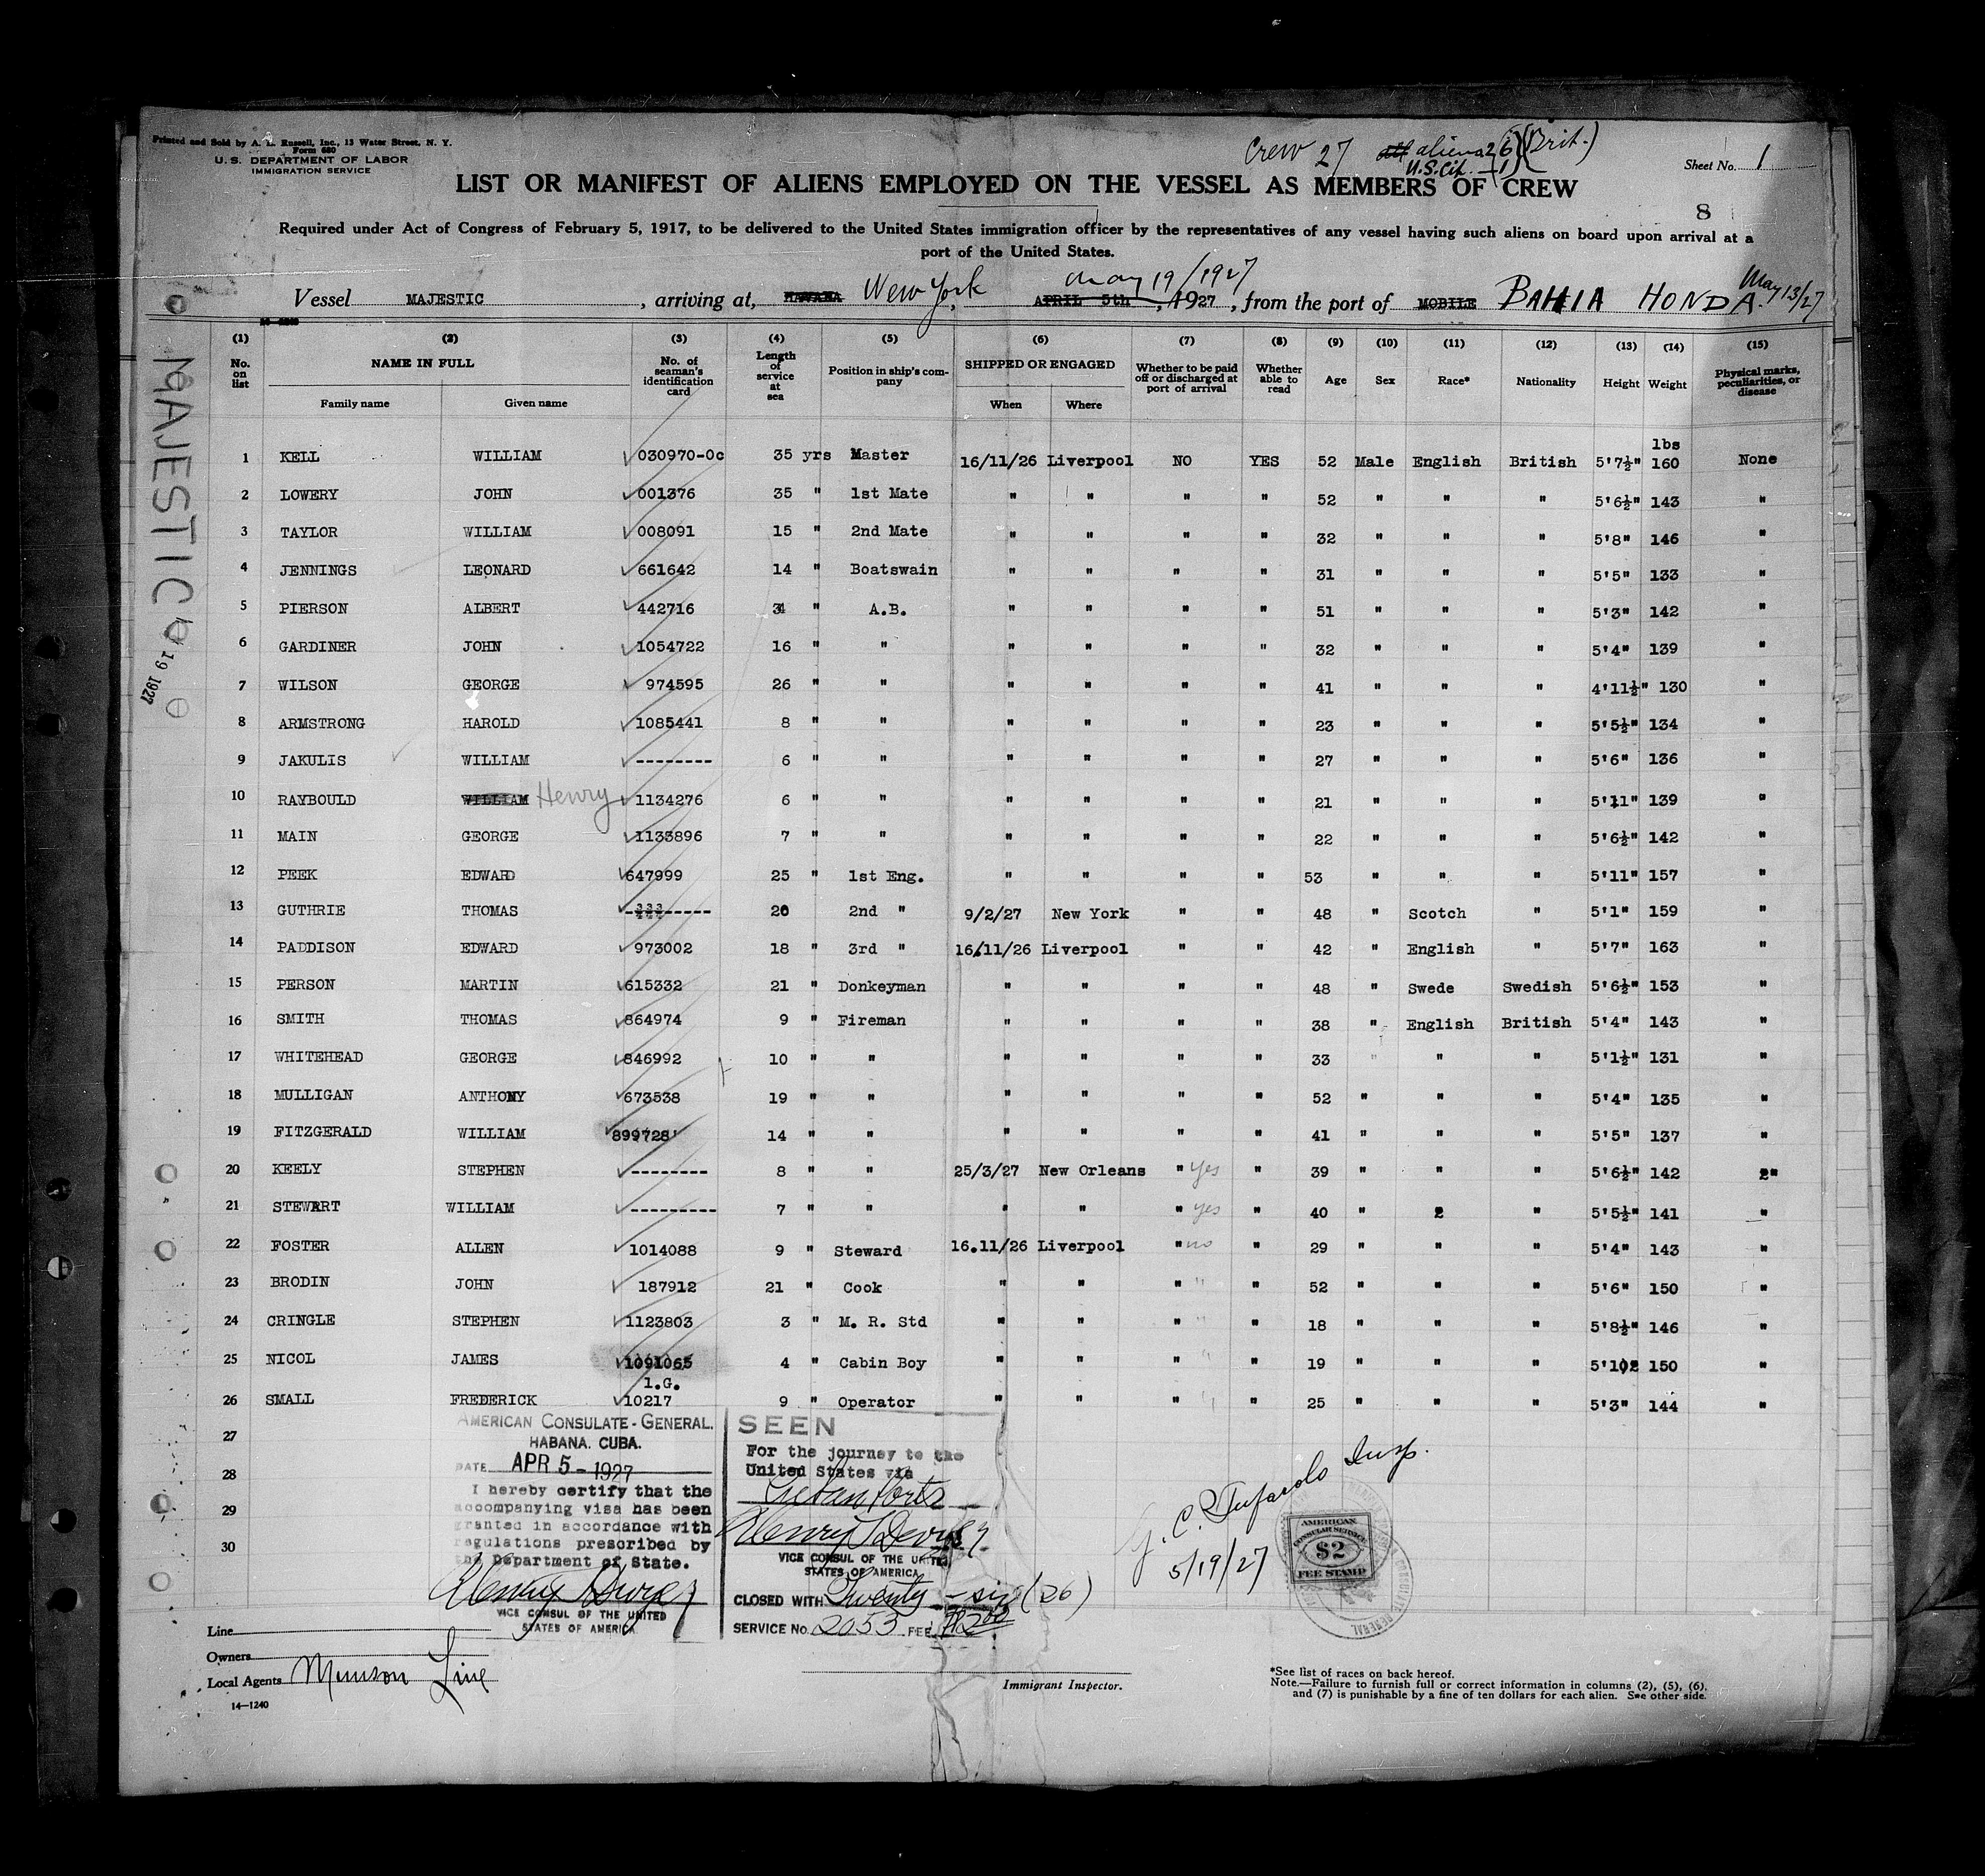 Printed and Sold by A. L. Russell, Inc., 13 Water Street, N. Y.
Form 680
U. S. DEPARTMENT OF LABOR
IMMIGRATION SERVICE
Crew 27 all aliens 26 (Brit.)
U.S. Cit. - 1
Sheet No. 1
LIST OR MANIFEST OF ALIENS EMPLOYED ON THE VESSEL AS MEMBERS OF CREW
8
Required under Act of Congress of February 5, 1917, to be delivered to the United States immigration officer by the representatives of any vessel having such aliens on board upon arrival at a
port of the United States.
Vessel MAJESTIC, arriving at, HAVANA New York, APRIL 5th May 19/1927, 1927, from the port of MOBILE BAHIA HONDA May 13/27
MAJESTIC
19 1927
(1) (2) (3) (4) (5) (6) (7) (8) (9) (10) (11) (12) (13) (14) (15)
No. on list NAME IN FULL Family name Given name No. of seaman's identification card Length of service at sea Position in ship's company SHIPPED OR ENGAGED When Where Whether to be paid off or discharged at port of arrival Whether able to read Age Sex Race* Nationality Height Weight Physical marks, peculiarities, or disease
lbs
1 KELL WILLIAM 030970-0c 35 yrs Master 16/11/26 Liverpool NO YES 52 Male English British 5'7½" 160 None
2 LOWERY JOHN 001376 35 " 1st Mate " " " " 52 " " " 5'6½" 143 "
3 TAYLOR WILLIAM 008091 15 " 2nd Mate " " " " 32 " " " 5'8" 146 "
4 JENNINGS LEONARD 661642 14 " Boatswain " " " " 31 " " " 5'5" 133 "
5 PIERSON ALBERT 442716 34 " A.B. " " " " 51 " " " 5'3" 142 "
6 GARDINER JOHN 1054722 16 " " " " " " 32 " " " 5'4" 139 "
7 WILSON GEORGE 974595 26 " " " " " " 41 " " " 4'11½" 130 "
8 ARMSTRONG HAROLD 1085441 8 " " " " " " 23 " " " 5'5½" 134 "
9 JAKULIS WILLIAM -------- 6 " " " " " " 27 " " " 5'6" 136 "
10 RAYBOULD WILLIAM Henry 1134276 6 " " " " " " 21 " " " 5'11" 139 "
11 MAIN GEORGE 1133896 7 " " " " " " 22 " " " 5'6½" 142 "
12 PEEK EDWARD 647999 25 " 1st Eng. " " " " 53 " " " 5'11" 157 "
13 GUTHRIE THOMAS -------- 20 2nd " 9/2/27 New York " " 48 " Scotch " 5'1" 159 "
14 PADDISON EDWARD 973002 18 " 3rd " 16/11/26 Liverpool " " 42 " English " 5'7" 163 "
15 PERSON MARTIN 615332 21 " Donkeyman " " " " 48 " Swede Swedish 5'6½" 153 "
16 SMITH THOMAS 864974 9 " Fireman " " " " 38 " English British 5'4" 143 "
17 WHITEHEAD GEORGE 846992 10 " " " " " " 33 " " " 5'1½" 131 "
18 MULLIGAN ANTHONY 673538 19 " " " " " " 52 " " " 5'4" 135 "
19 FITZGERALD WILLIAM 899728 14 " " " " " " 41 " " " 5'5" 137 "
20 KEELY STEPHEN -------- 8 " " 25/3/27 New Orleans " yes " 39 " " " 5'6½" 142 2"
21 STEWART WILLIAM --------- 7 " " " " " yes " 40 " 2 " 5'5½" 141 "
22 FOSTER ALLEN 1014088 9 " Steward 16.11/26 Liverpool " no " 29 " " " 5'4" 143 "
23 BRODIN JOHN 187912 21 " Cook " " " " " 52 " " " 5'6" 150 "
24 CRINGLE STEPHEN 1123803 3 " M. R. Std " " " " " 18 " " " 5'8½" 146 "
25 NICOL JAMES 1091065 4 " Cabin Boy " " " " " 19 " " " 5'102 150 "
1.G.
26 SMALL FREDERICK 10217 9 " Operator " " " " " 25 " " " 5'3" 144 "
27
28
29
30
AMERICAN CONSULATE-GENERAL.
HABANA. CUBA.
DATE APR 5-1927
I hereby certify that the
accompanying visa has been
granted in accordance with
regulations prescribed by
the Department of State.
VICE CONSUL OF THE UNITED
STATES OF AMERICA
SEEN
For the journey to the
United States via
Cuban Ports
VICE CONSUL OF THE UNITED
STATES OF AMERICA
CLOSED WITH Twenty-six (26)
SERVICE No. 2053 FEE
Insp.
5/19/27
AMERICAN
CONSULAR SERVICE
$2
FEE STAMP
Line
Owners
Local Agents Munson Line
14—1240
Immigrant Inspector.
*See list of races on back hereof.
Note.—Failure to furnish full or correct information in columns (2), (5), (6),
and (7) is punishable by a fine of ten dollars for each alien. See other side.